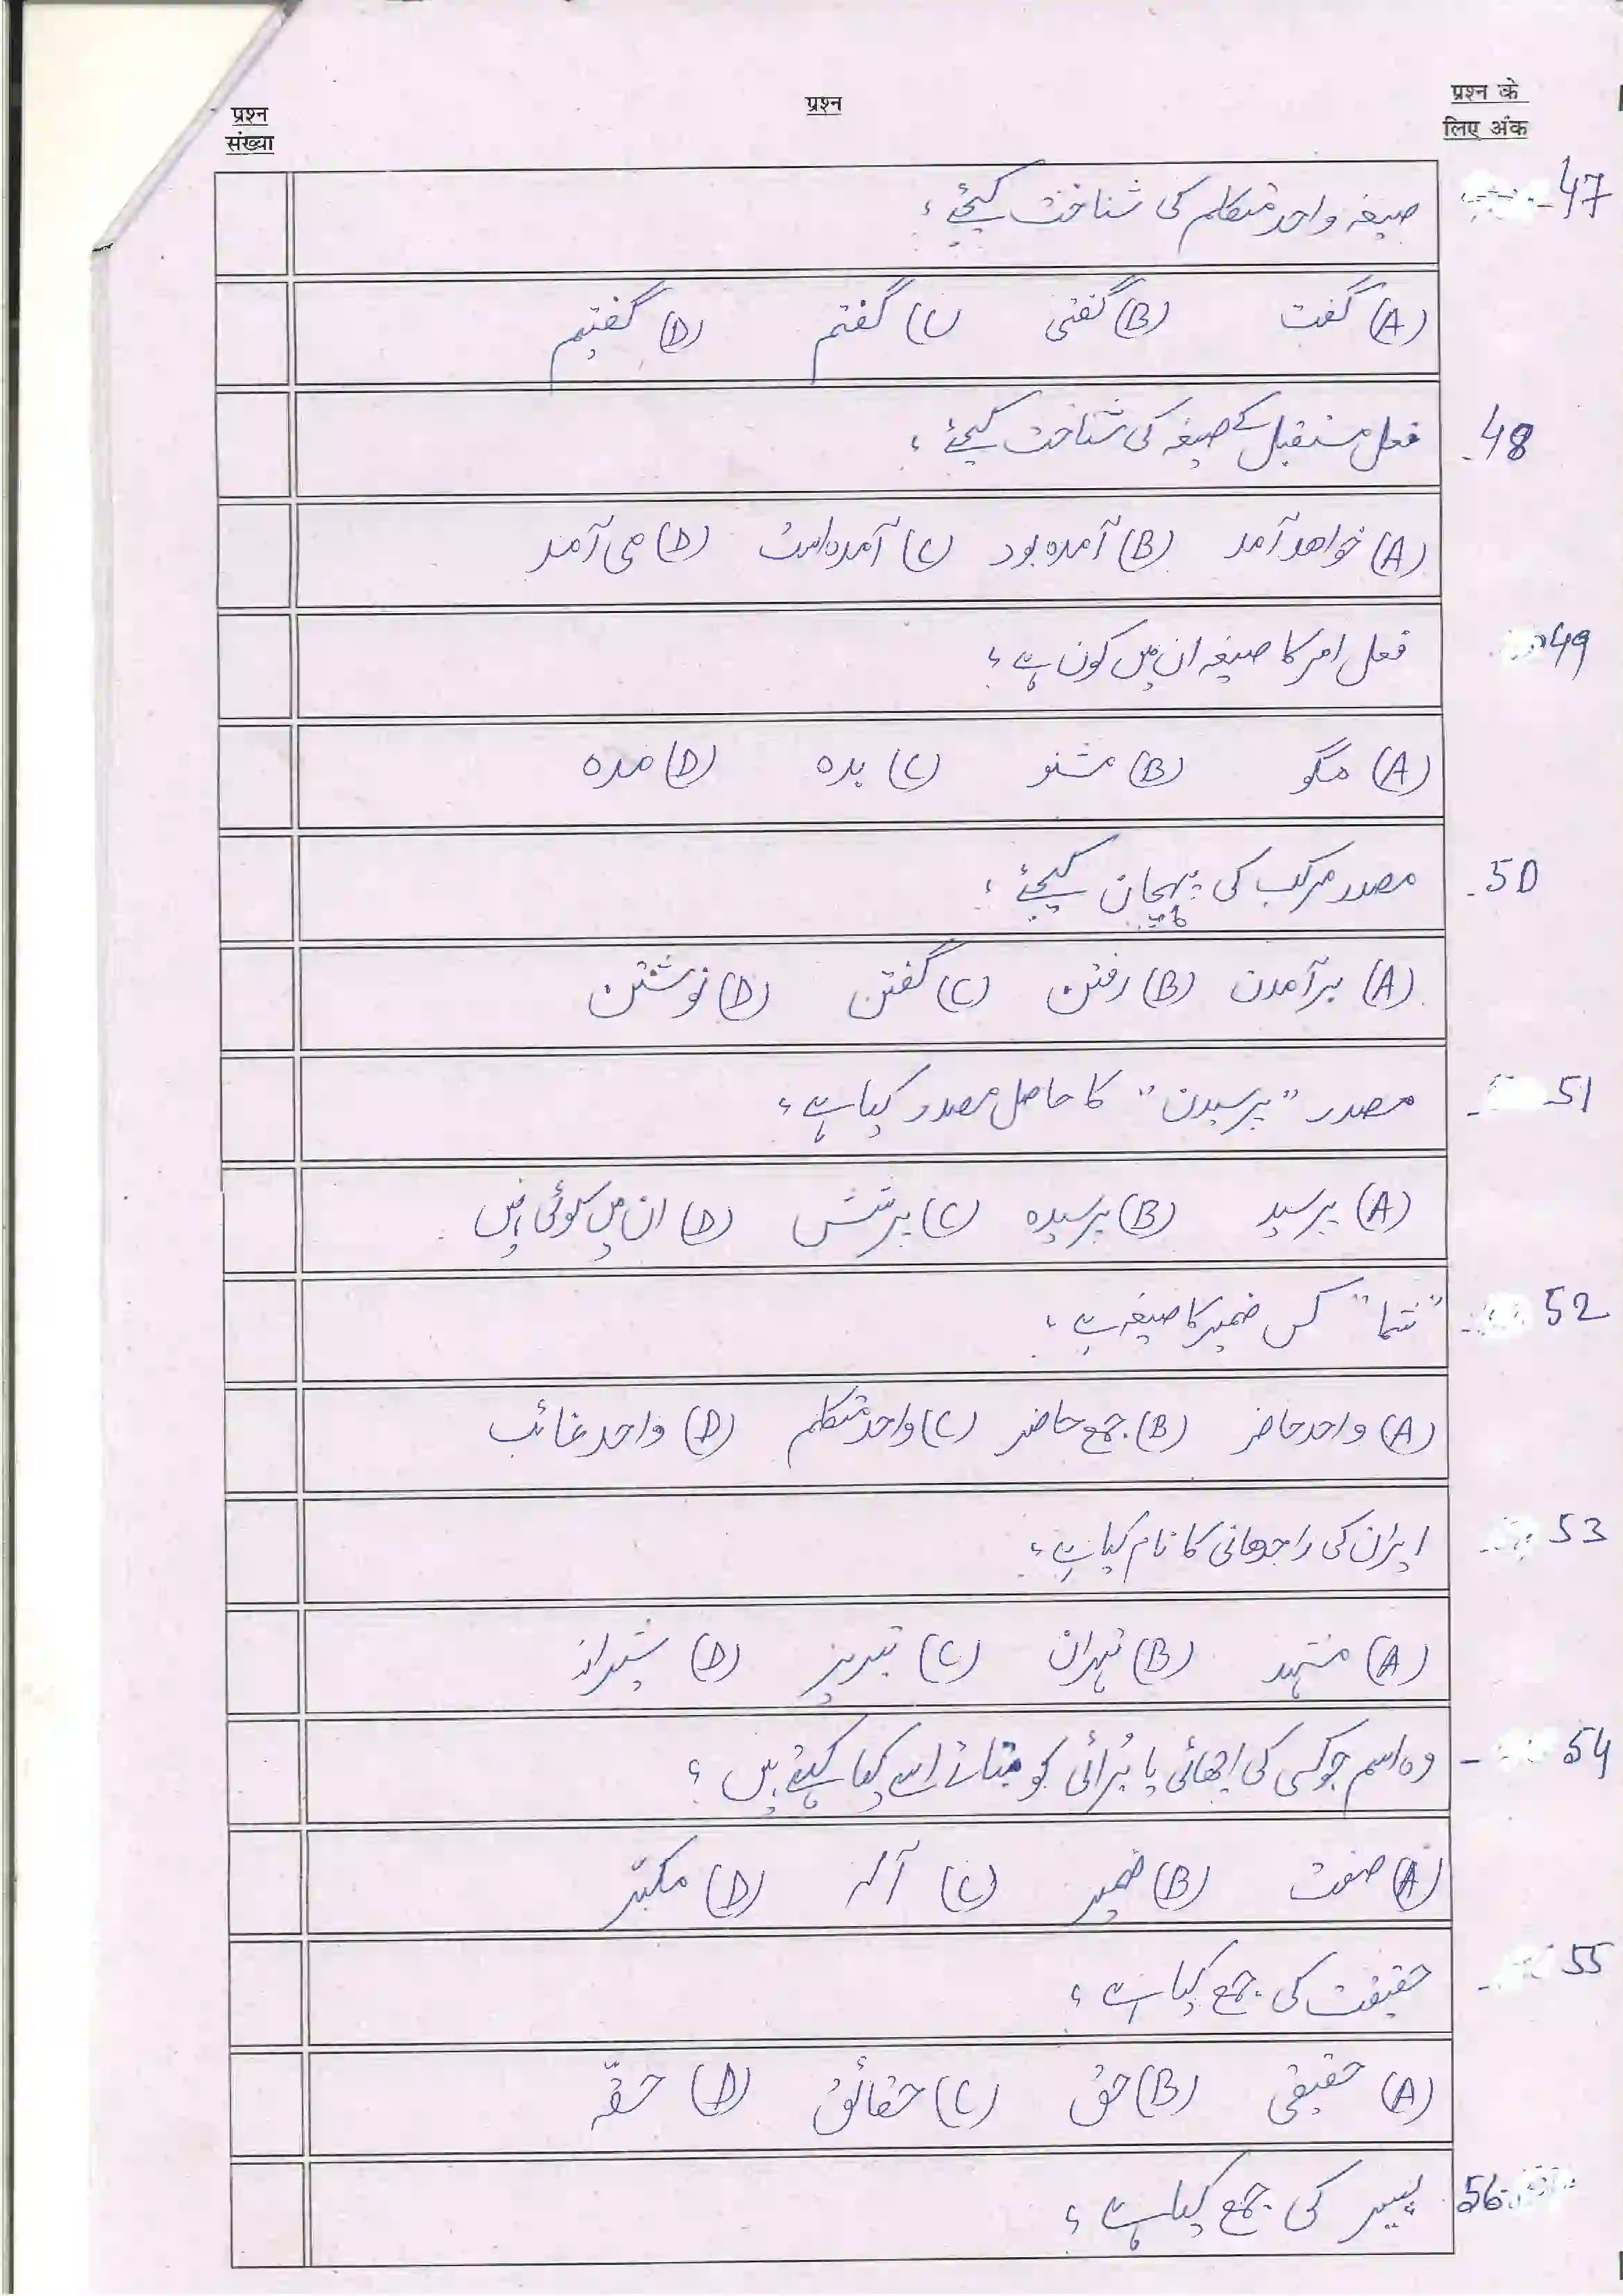 प्रश्न संख्या
प्रश्न
प्रश्न के लिए अंक
47- صیغہ واحد متکلم کی شناخت کیجئے؟
(A) گفت (B) گفتی (C) گفتم (D) گفتیم
48- فعل مستقبل کے صیغہ کی شناخت کیجئے؟
(A) خواهد آمد (B) آمدہ بود (C) آمدہ است (D) می آمد
49 فعل امر کا صیغہ ان میں کون ہے؟
(A) مگو (B) مشنو (C) بدہ (D) مدہ
50- مصدر مرکب کی پہچان کیجئے؟
(A) برآمدن (B) رفتن (C) گفتن (D) نوشتن
51- مصدر "پرسیدن" کا حاصل مصدر کیا ہے؟
(A) پرسید (B) پرسیدہ (C) پرشش (D) ان میں کوئی نہیں
52- "شما" کس ضمیر کا صیغہ ہے؟
(A) واحد حاضر (B) جمع حاضر (C) واحد متکلم (D) واحد غائب
53- ایران کی راجدھانی کا نام کیا ہے؟
(A) مشہد (B) تہران (C) تبریز (D) شیراز
54- وہ اسم جو کسی کی اچھائی یا بُرائی کو بتائے اسے کیا کہتے ہیں؟
(A) صفت (B) ضمیر (C) آلہ (D) مکبّر
55- حقیقت کی جمع کیا ہے؟
(A) حقیقی (B) حق (C) حقائق (D) حقّہ
56 پیر کی جمع کیا ہے؟